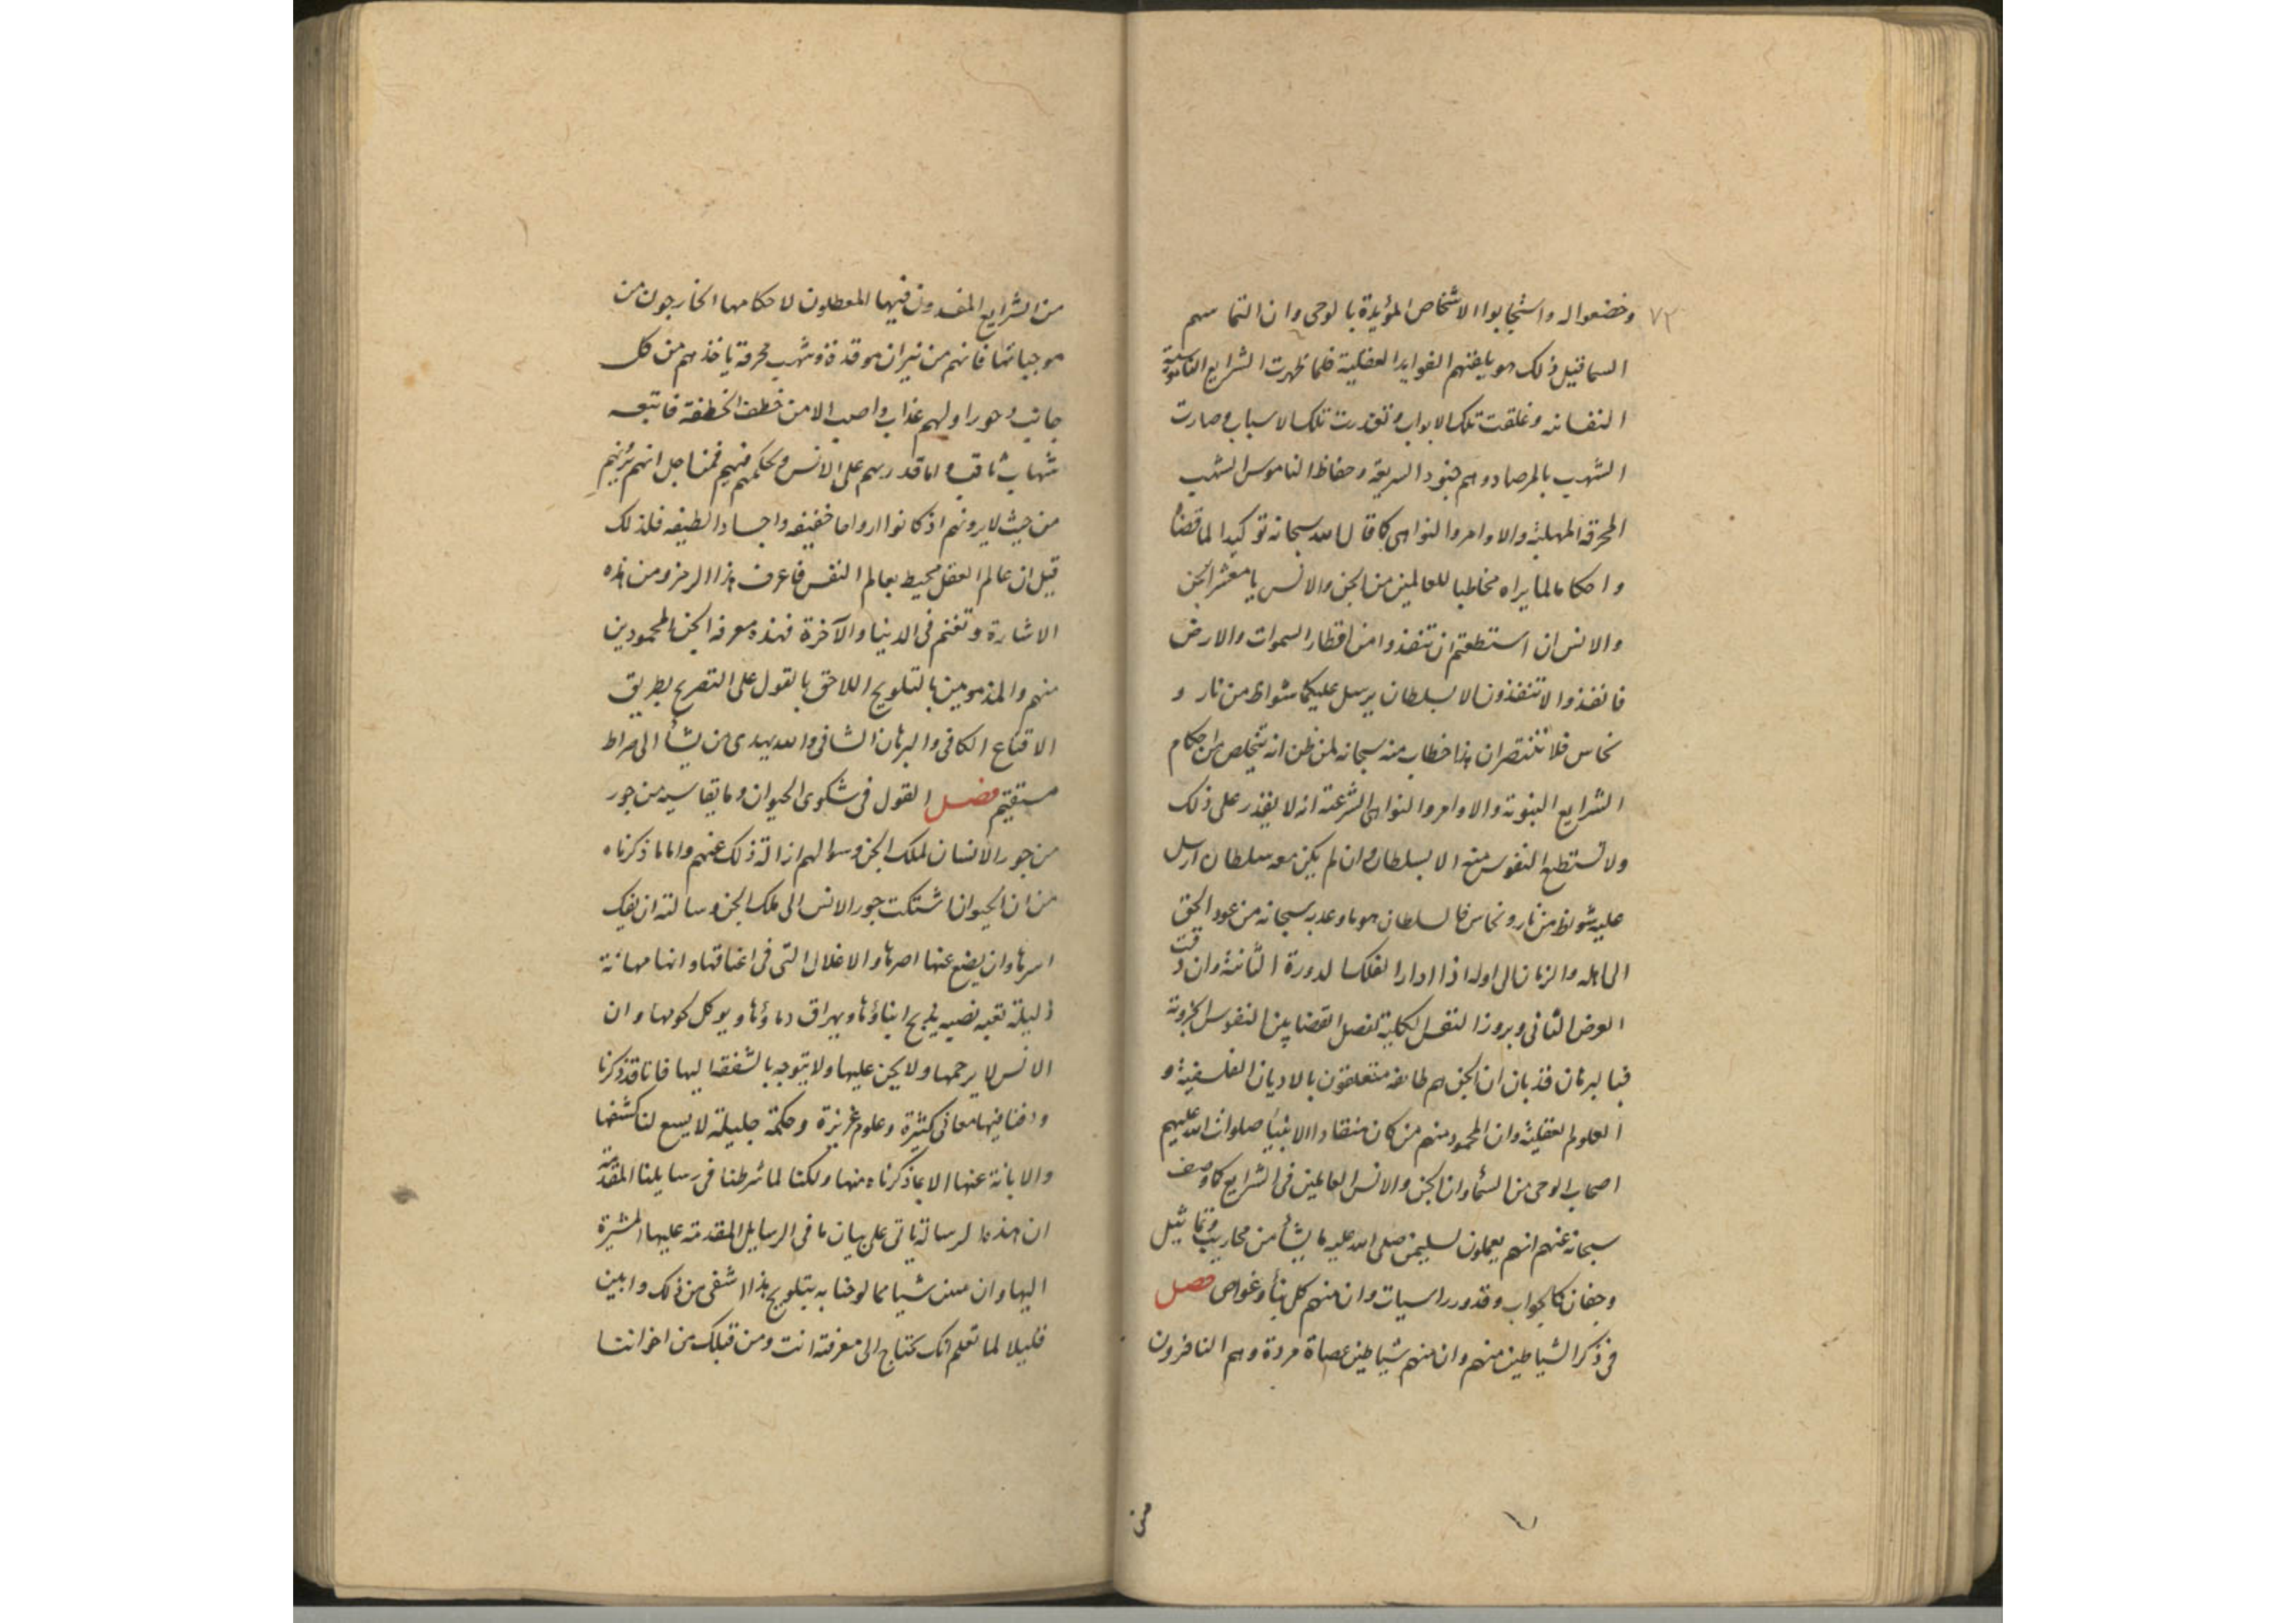 ٧٢
وخضعوا له واستجابوا الاشخاص المؤيدة بالوحى وان التماسهم
السما قبل ذلك هو بايقنهم الفوايد العقلية فلما ظهرت الشرايع الناموسية
النفسانه وغلقت تلك الابواب وتعذرت تلك الاسباب وصارت
الشهب بالمرصاد وهم جنود الشريعة وحفاظ الناموس الشهب
المحرقة المهلكة والاوامر والنواهى كما قال الله سبحانه توكيدا لما قضاه
واحكاما لما يراه مخاطبا للعالمين من الجن والانس يا معشر الجن
والانس ان استطعتم ان تنفذوا من اقطار السموات والارض
فانفذوا لا تنفذون الا بسلطان يرسل عليكما شواظ من نار و
نحاس فلا تنتصران هذا خطاب منه سبحانه لمن ظن انه يتخلص من احكام
الشرايع النبوية والاوامر والنواهى الشرعية انه لا يقدر على ذلك
ولا تستطيع النفوس منه الا بسلطان وان لم يكن معه سلطان ارسل
عليه شواظ من نار ونحاس فالسلطان هو ما وعد به سبحانه من عود الحق
الى اهله والزمان الى اوله اذا ادار الفلك الدورة الثانية وان وقت
العرض الثانى وبروز النفس الكلية لفصل القضا بين النفوس الجزوية
فبالبرهان قد بان ان الجن هم طائفة متعلقون بالاديان الفلسفية و
العلوم العقلية وان المحمود منهم من كان منقادا الانبيا صلوات الله عليهم
اصحاب الوحى من السماء وان الجن والانس العالمين فى الشرايع كما وصف
سبحانه عنهم انهم يعملون لسليمن صلى الله عليه ما يشأ من محاريب وتماثيل
وجفان كالجواب وقدور راسيات وان منهم كل بنأ وغواص فصل
فى ذكر الشياطين منهم وان منهم شياطين عصاة مردة وهم النافرون
من
من الشرايع المفسدون فيها المعطلون لاحكامها الخارجون من
موجباتها فانهم من نيران موقدة وشهب محرقة ياخذهم من كل
جانب دحورا ولهم عذاب واصب الا من خطف الخطفة فاتبعه
شهاب ثاقب واما قدرتهم على الانس وتحكمهم فيهم فمن اجل انهم يرونهم
من حيث لا يرونهم اذ كانوا ارواحا خفيفه واجسادا لطيفه فلذلك
قيل ان عالم العقل محيط بعالم النفس فاعرف هذا الرمز ومن هذه
الاشارة وتغنم فى الدنيا والآخرة فهذه معرفة الجن المحمودين
منهم والمذمومين بالتلويح اللاحق بالقول على التصريح بطريق
الاقناع الكافى والبرهان الشافى والله يهدى من يشأ الى صراط
مستقيم فصل القول فى شكوى الحيوان وما يقاسيه من جور
من جور الانسان لملك الجن وسوالهم ازالة ذلك عنهم واما ما ذكرناه
من ان الحيوان اشتكت جور الانس الى ملك الجن وسالته ان يفك
اسرها وان يضع عنها اصرها والاغلال التى فى اعناقها وانها مهانة
ذليلة تعبه نصبه يذبح ابناؤها ويهراق دماؤها ويوكل لحومها وان
الانس لا يرحمها ولا يحن عليها ولا يتوجه بالشفقة اليها فانا قد ذكرنا
ودفنا فيها معانى كثيرة وعلوم غزيرة وحكمة جليلة لا يسع لنا كشفها
والابانة عنها الا بما ذكرناه منها ولكنا لما شرطنا فى رسايلنا المقدمة
ان هذه الرسالة تاتى على بيان ما فى الرسايل المقدمة عليها المشيرة
اليها وان شيا مما لوحنا به بتلويح هذا اشفى من ذلك وابين
قليلا لما تعلم انك تحتاج الى معرفته انت ومن قبلك من اخواننا